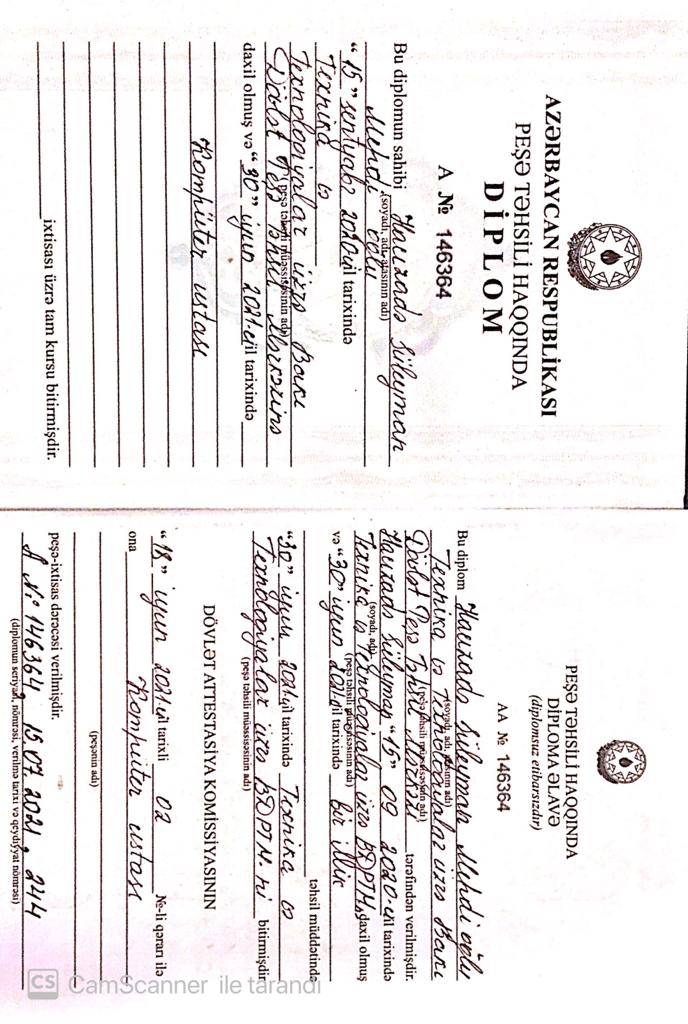 AZƏRBAYCAN RESPUBLİKASI
PEŞƏ TƏHSİLİ HAQQINDA
DİPLOM
A № 146364
Bu diplomun sahibi Hacızadə Süleyman
(soyadı, adı, atasının adı)
Mehdi oğlu
“15” sentyabr 2020-ci il tarixində
Texnika və
Texnologiyalar üzrə Bakı
(peşə təhsili müəssisəsinin adı)
Dövlət Peşə Təhsil Mərkəzinə
daxil olmuş və “30” iyun 2021-ci il tarixində
Kompüter ustası
ixtisası üzrə tam kursu bitirmişdir.
PEŞƏ TƏHSİLİ HAQQINDA
DİPLOMA ƏLAVƏ
(diplomsuz etibarsızdır)
AA № 146364
Bu diplom Hacızadə Süleyman Mehdi oğlu
(soyadı, adı, atasının adı)
Texnika və Texnologiyalar üzrə Bakı
(peşə təhsili müəssisəsinin adı)
Dövlət Peşə Təhsil Mərkəzi tərəfindən verilmişdir.
Hacızadə Süleyman “15” 09 2020-ci il tarixində
(soyadı, adı)
Texnika və Texnologiyalar üzrə BDPTM daxil olmuş
(peşə təhsili müəssisəsinin adı)
və “30” iyun 2021-ci il tarixində bir illik
təhsil müddətində
“30” iyun 2021-ci il tarixində Texnika və
Texnologiyalar üzrə BDPTM-ni bitirmişdir.
(peşə təhsili müəssisəsinin adı)
DÖVLƏT ATTESTASİYA KOMİSSİYASININ
“18” iyun 2021-ci il tarixli 02 №-li qərarı ilə
ona Kompüter ustası
(peşənin adı)
peşə-ixtisas dərəcəsi verilmişdir.
A № 146364, 15.07.2021, 244
(diplomun seriyası, nömrəsi, verilmə tarixi və qeydiyyat nömrəsi)
CS CamScanner ilə tarandı